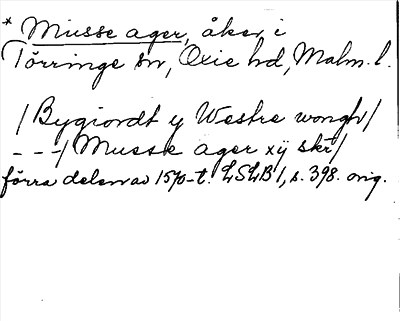 * Musse ager, åker i
Törringe sn, Oxie hd, Malm. l.
/Bygiordt y Westre wongh/
---/Musse ager xij skr/
förra delen av 1570-t. LSLB 1, s. 398. orig.